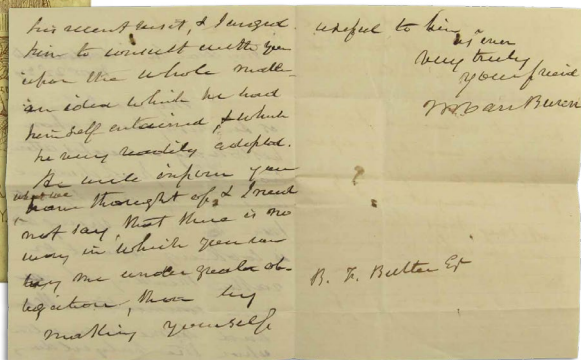 his recent visit, & I urged
him to consult with you
upon the whole matter
an idea which he had
himself entertained, & which
he very readily adopted.
He will inform you
what we
have thought of, & I need
not say, that there is no
way in which you can
lay me under greater ob-
ligation, than by
making yourself
useful to him
as ever
very truly
your friend
M Van Buren
B. F. Butler Esq